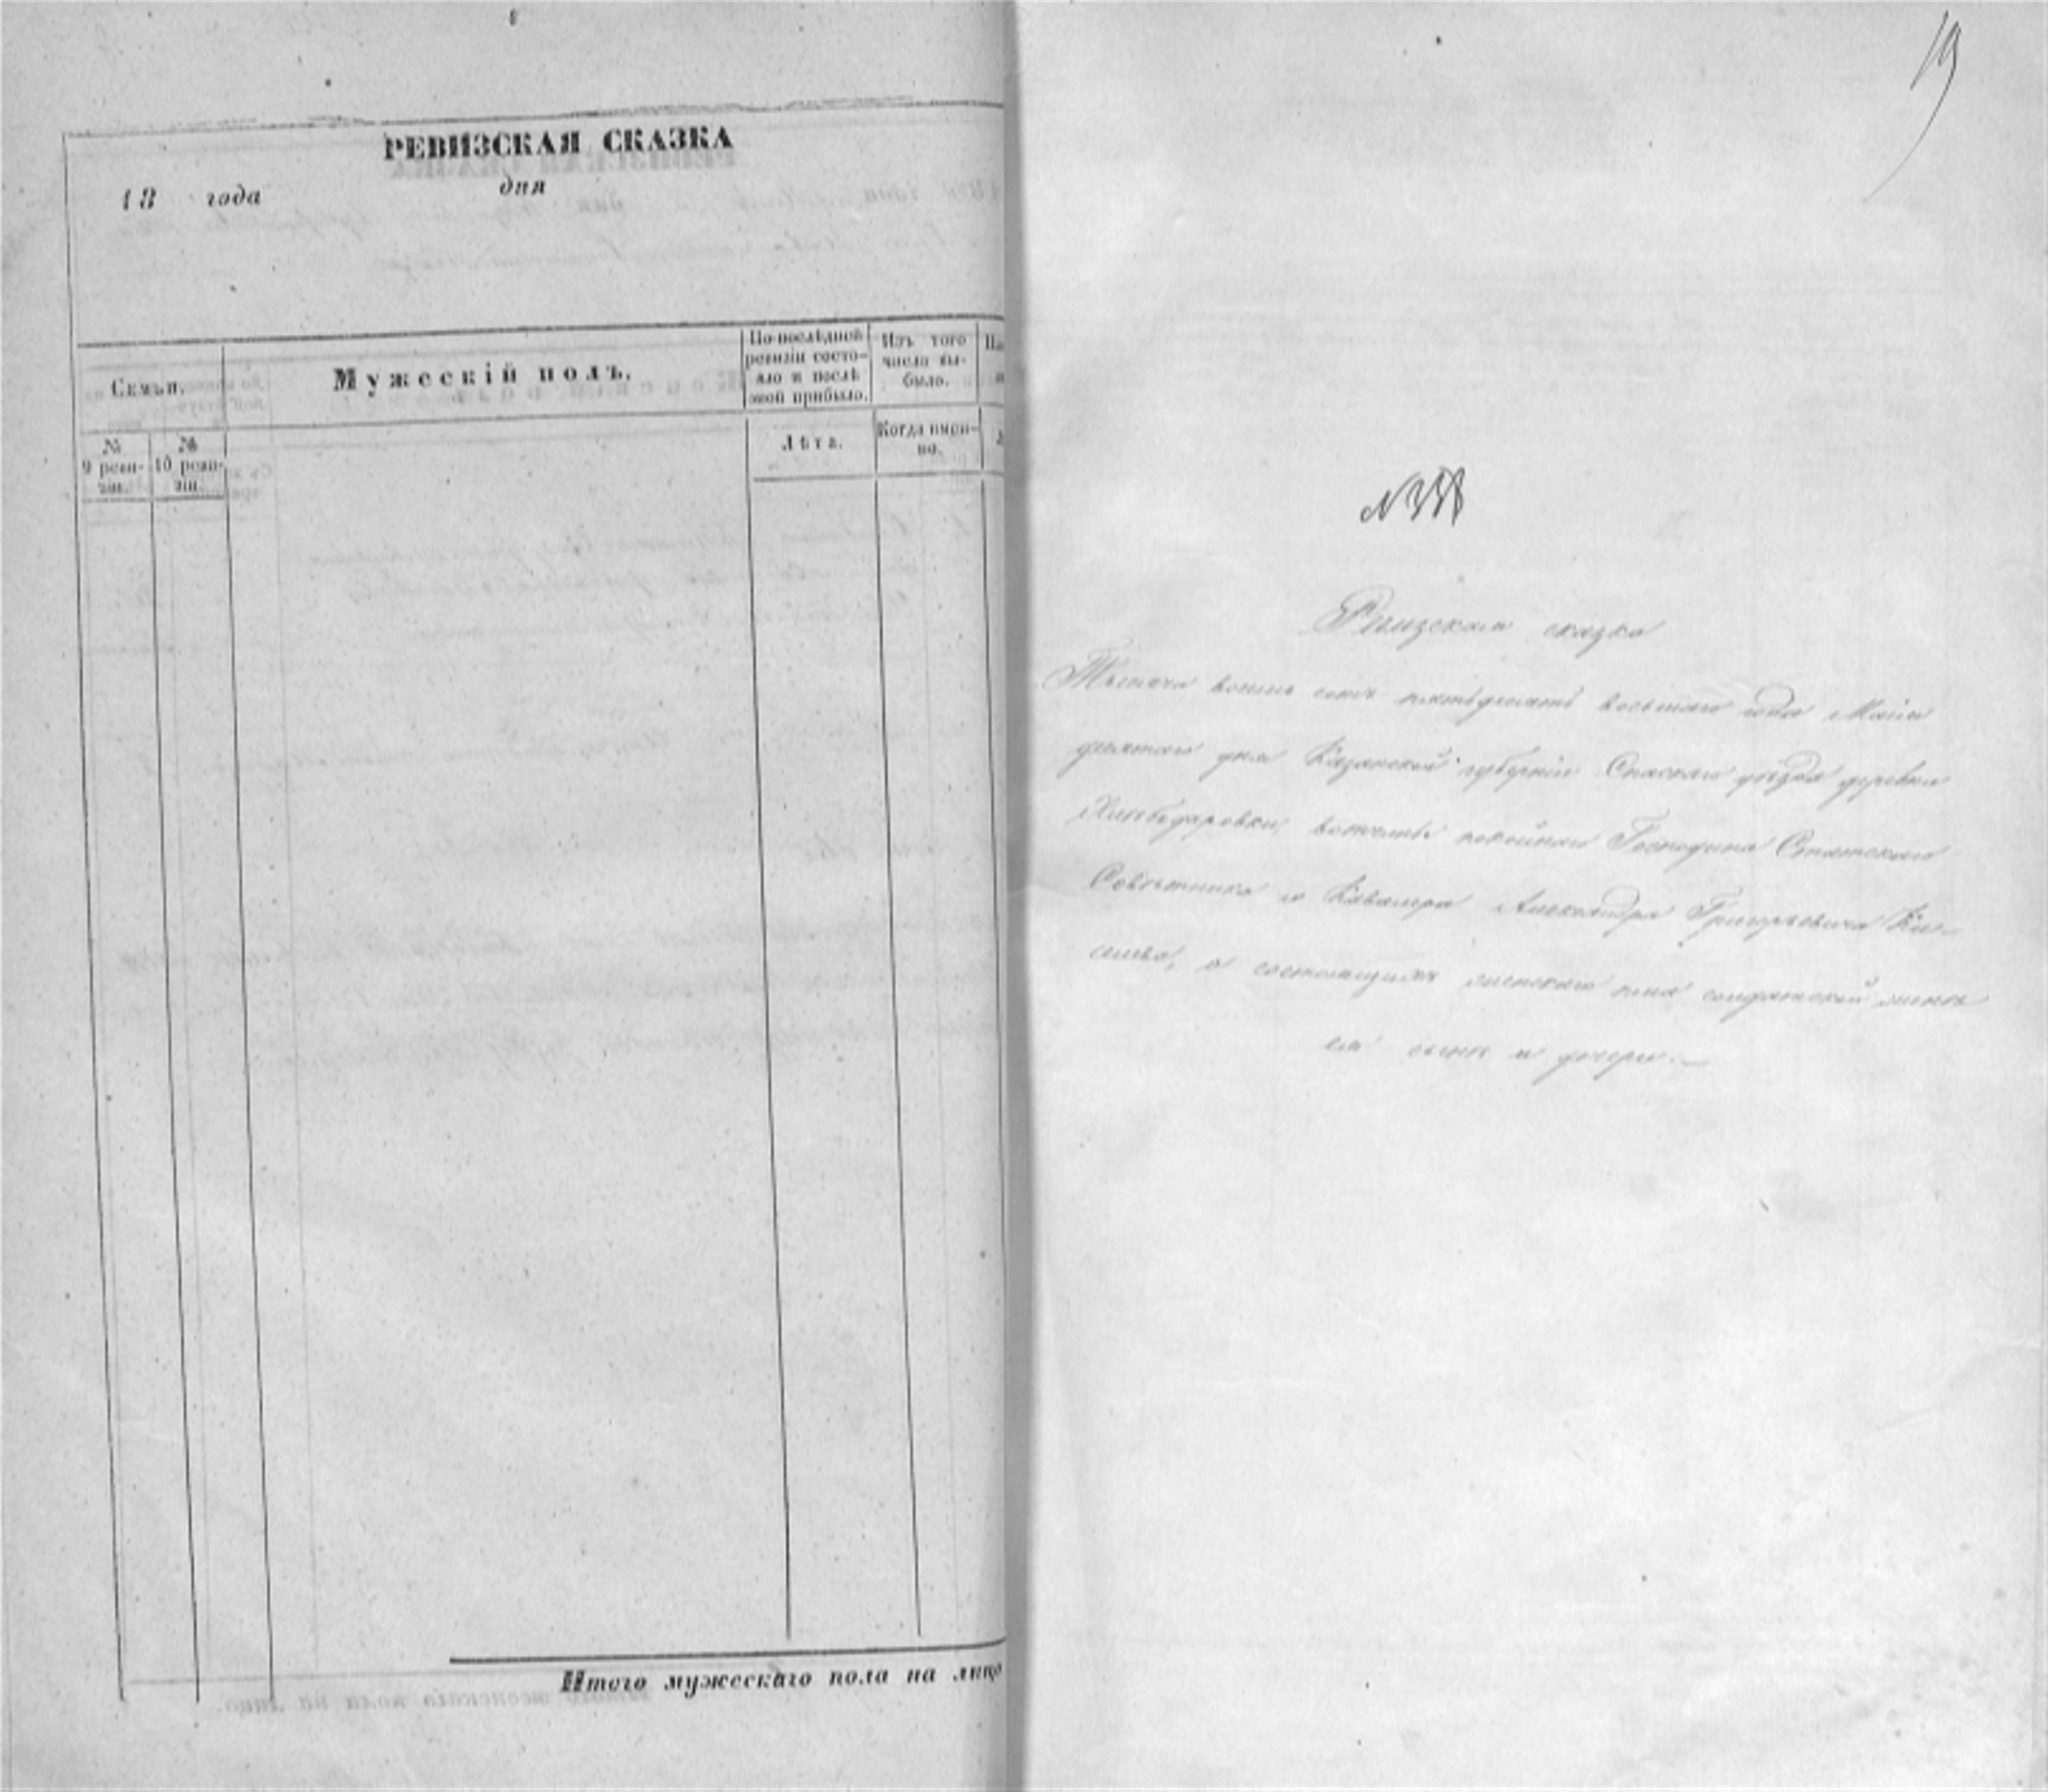 РЕВИЗСКАЯ СКАЗКА
18 года дня
Семьи.
Мужескій полъ.
По послѣдней ревизіи состояло и послѣ оной прибыло.
Изъ того числа выбыло.
№ 9 ревизіи.
№ 10 ревизіи.
Лѣта.
Когда именно.
Итого мужескаго пола на лицо
19
Ревизская сказка
Тысяча восемь сотъ пятьдесятъ восьмаго года Маія
десятаго дня Казанской губерніи Спаскаго уѣзда деревни
вотчины покойнаго Господина Статскаго
Совѣтника и Кавалера Александра Григорьевича Ки-
селева, о состоящихъ женскаго пола солдатской женѣ
ея сынѣ и дочери.